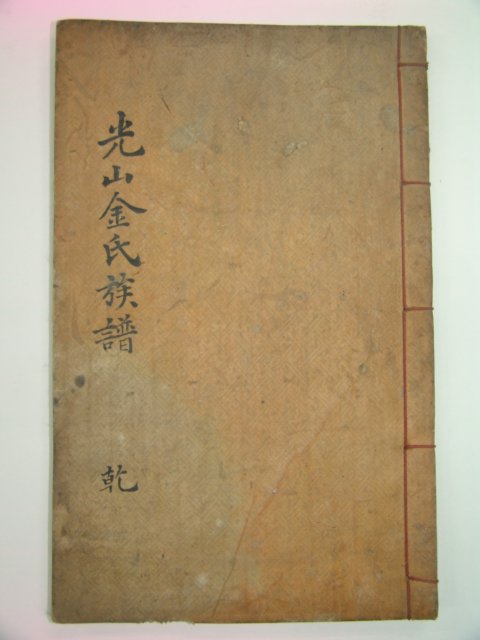 光山金氏族譜
乾